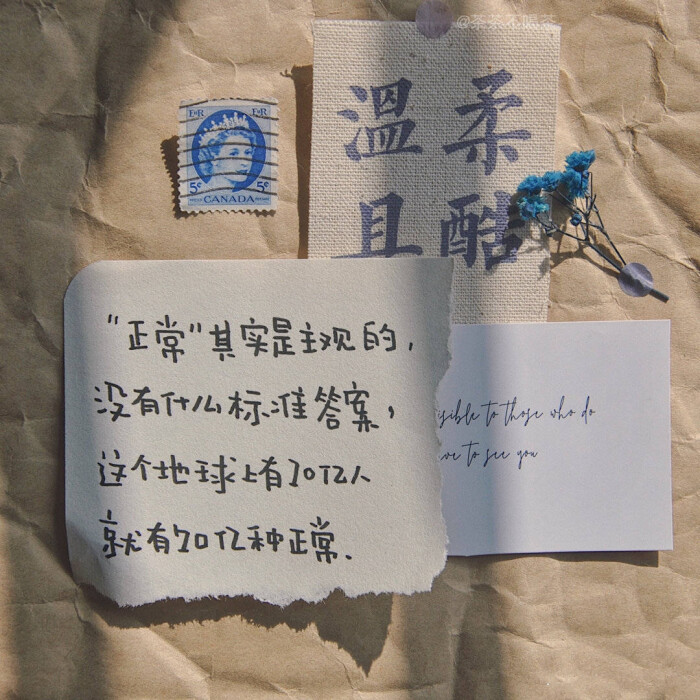 @茶茶不喝茶
EIIR EIIR
5¢ 5¢
CANADA
溫柔
且酷
"正常"其实是主观的，
没有什么标准答案，
这个地球上有70亿人
就有70亿种正常.
to those who do
to see you